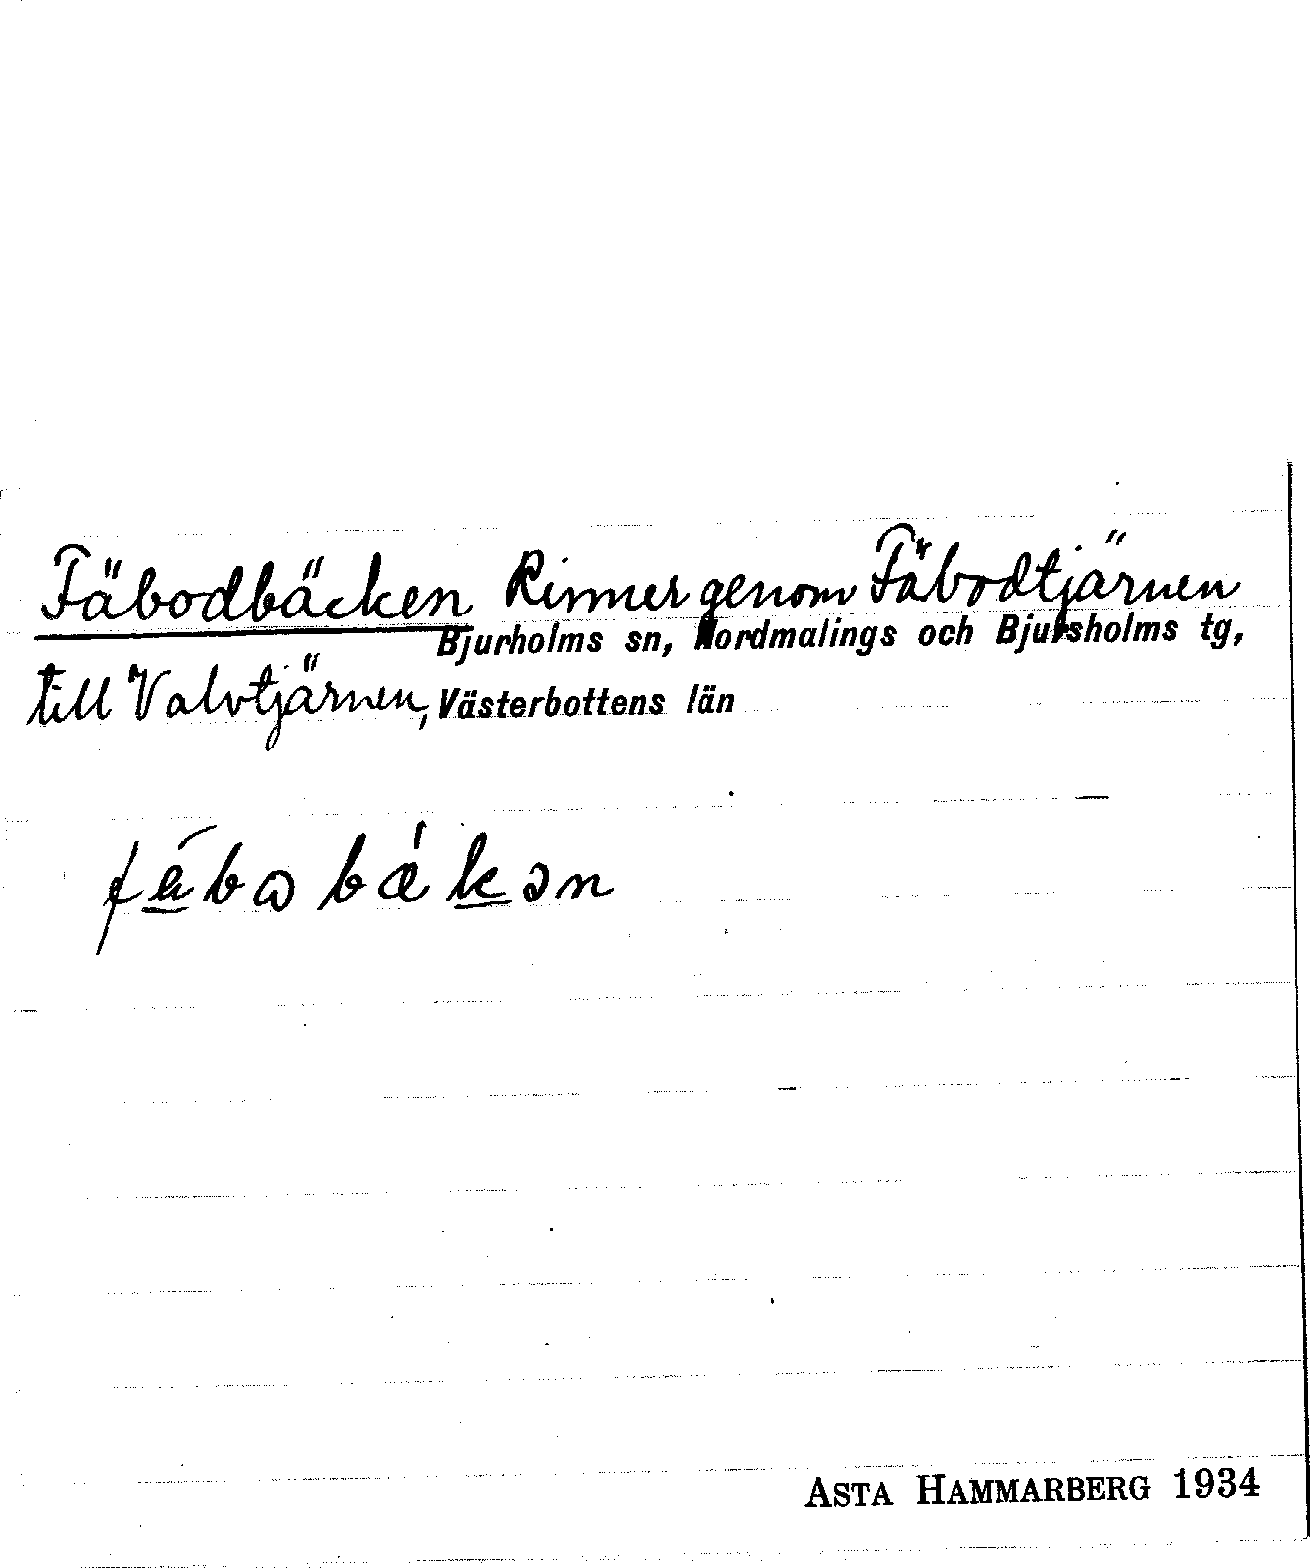 Fäbodbäcken Rinner genom Fäbodtjärnen
Bjurholms sn, Nordmalings och Bjursholms tg,
till Valvtjärnen, Västerbottens län
fä́bωbǽkən
ASTA HAMMARBERG 1934